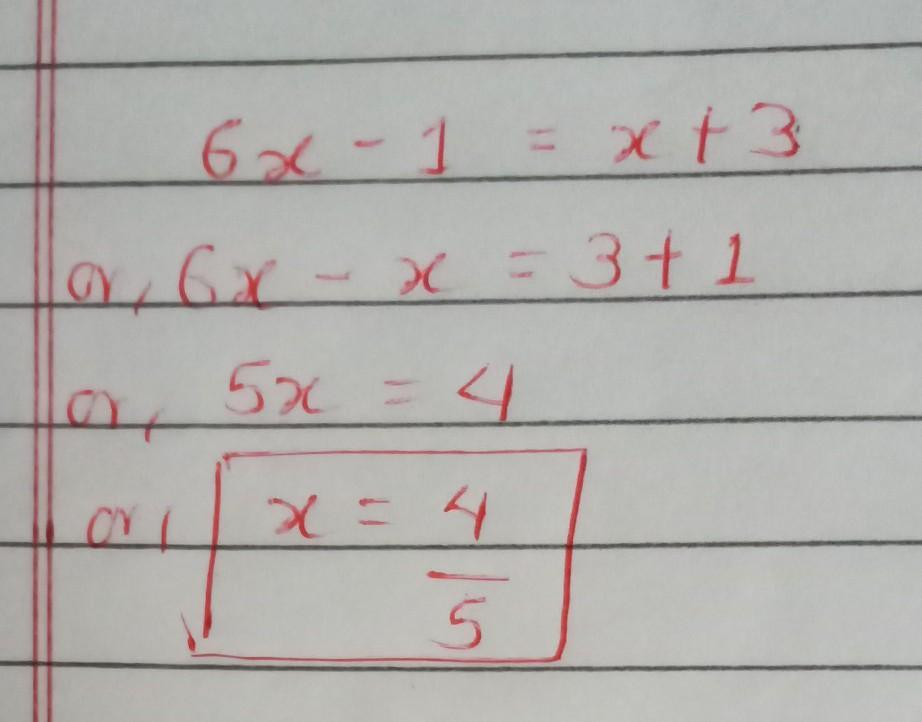 6x - 1 = x + 3
or, 6x - x = 3 + 1
or, 5x = 4
or, x = 4/5